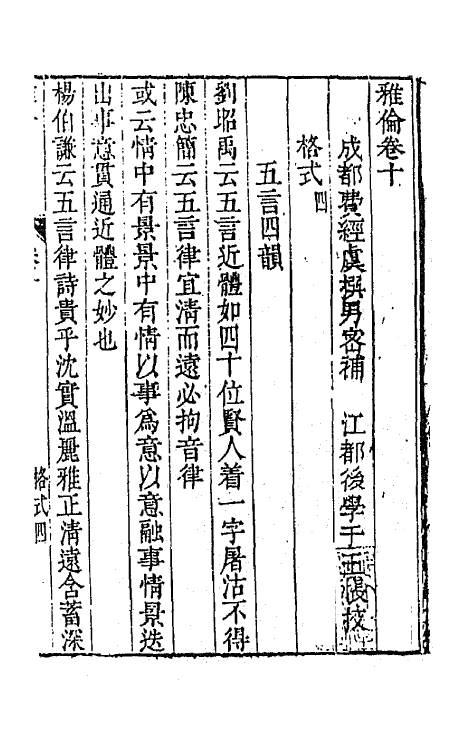 雅倫卷十
成都費經虞撰男密補　江都後學于王棖挍
格式四
五言四韻
劉昭禹云五言近體如四十位賢人着一字屠沽不得
陳忠簡云五言律宜清而遠必拘音律
或云情中有景景中有情以事爲意以意融事情景迭
出事意貫通近體之妙也
楊伯謙云五言律詩貴乎沈實溫麗雅正清遠含蓄深
格式四